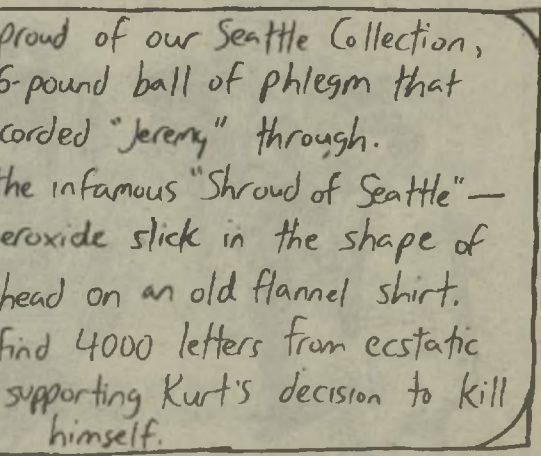 proud of our Seattle Collection,
6-pound ball of phlegm that
corded "Jeremy" through.
the infamous "Shroud of Seattle"—
eroxide slick in the shape of
head on an old flannel shirt.
find 4000 letters from ecstatic
supporting Kurt's decision to kill
himself.